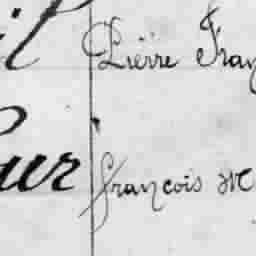 il Pierre Fran
eur françois